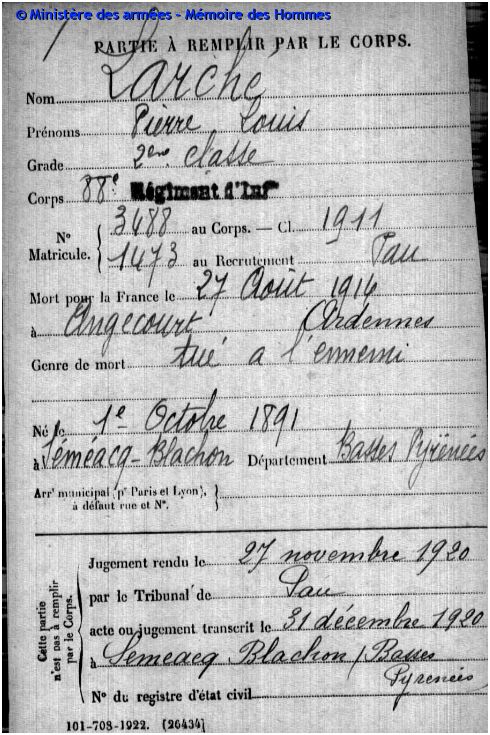 © Ministère des armées - Mémoire des Hommes
PARTIE À REMPLIR PAR LE CORPS.
Nom Larché
Prénoms Pierre Louis
Grade 2eme classe
Corps 88e Régiment d'Infie
N° Matricule. { 3488 au Corps. — Cl. 1911
1473 au Recrutement Pau
Mort pour la France le 27 Août 1914
à Angecourt Ardennes
Genre de mort tué a l'ennemi
Né le 1e Octobre 1891
à Séméacq-Blachon Département Basses Pyrénées
Arrt municipal (pr Paris et Lyon), à défaut rue et N°. }
Cette partie n'est pas à remplir par le Corps. {
Jugement rendu le 27 novembre 1920
par le Tribunal de Pau
acte ou jugement transcrit le 31 décembre 1920
à Semeacq Blachon (Basses
Pyrenées
N° du registre d'état civil
101-708-1922. [26434]